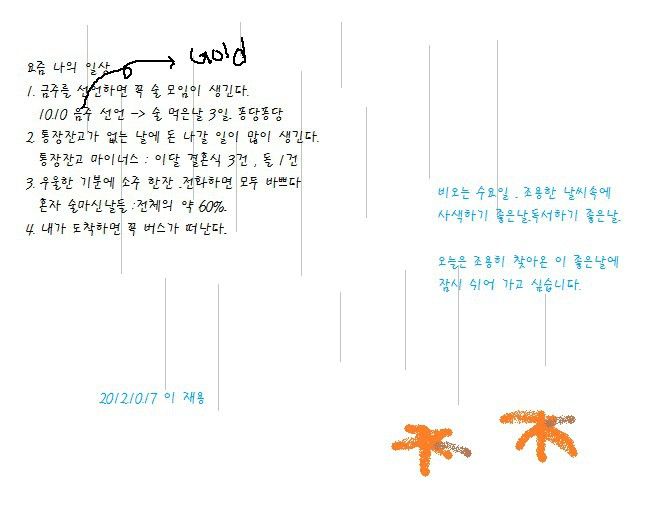 Gold
요즘 나의 일상
1. 금주를 선언하면 꼭 술 모임이 생긴다.
10.10 음주 선언 -> 술 먹은날 3일. 퐁당퐁당
2. 통장잔고가 없는 날에 돈 나갈 일이 많이 생긴다.
통장잔고 마이너스 : 이달 결혼식 3건, 돌 1건
3. 우울한 기분에 소주 한잔 .전화하면 모두 바쁘다
혼자 술마신날들 :전체의 약 60%.
4. 내가 도착하면 꼭 버스가 떠난다.
비오는 수요일 . 조용한 날씨속에
사색하기 좋은날.독서하기 좋은날.
오늘은 조용히 찾아온 이 좋은날에
잠시 쉬어 가고 싶습니다.
2012.10.17 이 재용